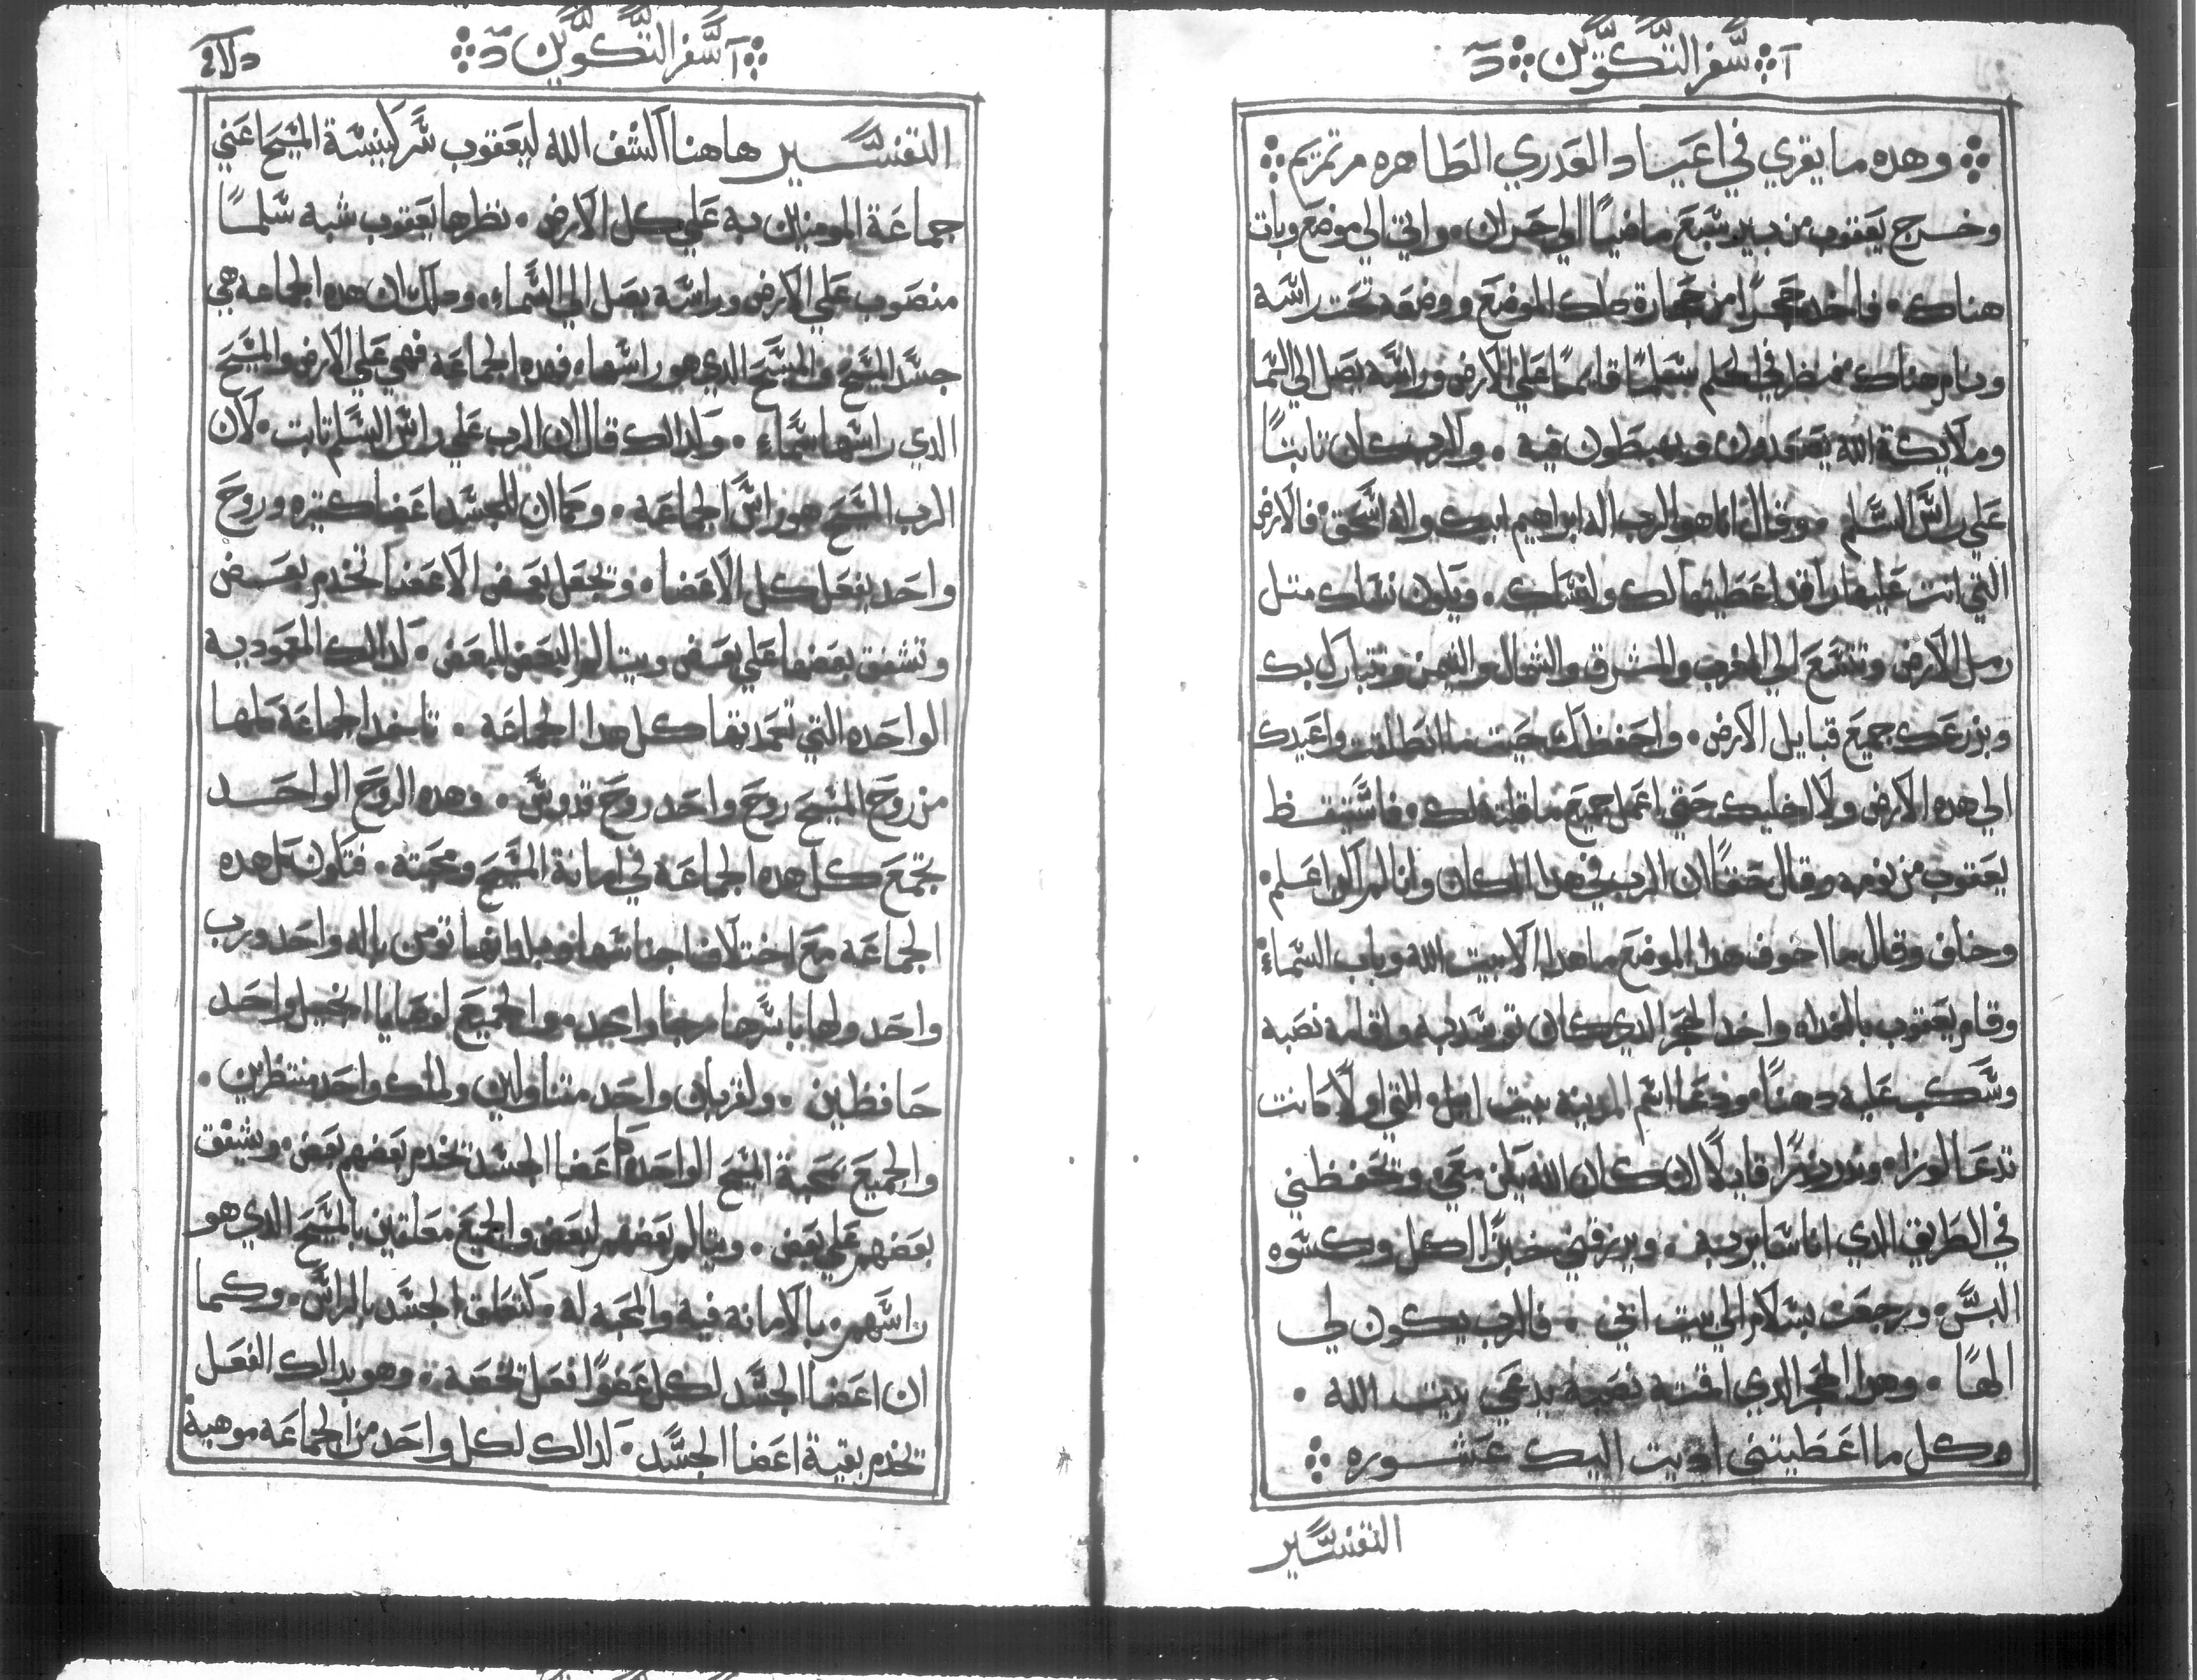 سفر التكوين
وهده ما يقري في اعياد العدري الطاهره مرتمريم
وخرج يعقوب من بير سبع ماضيًا الي حران. واتي الي موضع وبات
هناك. فاخد حجرًا من حجارة دلك الموضع ووضعه تحت راسه
ونام هناك. فنظر في الحلم سلمًا قايمًا علي الارض وراسه يصل الي السما
وملايكة الله يصعدون ويهبطون فيه. والرب كان تابتًا
علي راس السلم. وقال انا هو الرب اله ابراهيم ابيك واله اسحق. فالارض
التي انت عليها راقد اعطيتها لك ولنسلك. ويكون نسلك متل
رمل الارض وتتسع الي المغرب والمشرق والشمال والتيمن وتتبارك بك
وبزرعك جميع قبايل الارض. واحفظك حيت ما انطلقت واعيدك
الي هده الارض ولا اخليك حتي اعمل جميع ما قلته لك. فاستيقظ
يعقوب من نومه وقال حقًا ان الرب في هدا المكان وانا لم اكن اعلم.
وخاف وقال ما اخوف هدا الموضع ما هدا الا بيت الله وباب السماء
وقام يعقوب بالغداه واخد الحجر الدي كان توسد به واقامه نصبه
وسكب عليه دهنًا. ودعا اسم المدينه بيت ايل. التي اولًا كانت
تدعا لوزا. وندر ندرًا قايلًا ان كان الله يكن معي. وتحفظني
في الطريق الدي انا ساير فيه. ويرزقني خبزًا لاكل وكسوه
البس. ورجعت بسلام الي بيت ابي. فالرب يكون لي
الهًا. وهدا الحجر الدي اقمته نصبه يدعي بيت الله.
وكل ما اعطيتني اديت اليك عشوره
التفسير
سفر التكوين
التفسير هاهنا اكشف الله ليعقوب سر كنيسة المسيح اعني
جماعة المومنين به علي كل الارض. نظرها يعقوب شبه سلمًا
منصوب علي الارض وراسه يصل الي السماء. ودلك ان هده الجماعه هي
جسد المسيح والمسيح الدي هو راسها. فهده الجماعه فهي علي الارض والمسيح
الدي راسها سماء. ولدالك قال ان الرب علي راس السلم تابت. لان
الرب المسيح هو راس الجماعه. وكما ان للجسد اعضا كتيره وروح
واحد يفعل كل الاعضا. وتجعل بعض الاعضا تخدم بعض
وتشفق بعضها علي بعض ويتالم البعض للبعض. لدالك المعموديه
الواحده التي تعمد بها كل هدا الجماعه. تاخد الجماعه كلها
من روح المسيح روح واحد روح قدوس. وهده الروح الواحد
تجمع كل هده الجماعه في امانة المسيح ومحبته. فتكون كل هده
الجماعه مع اختلاف اجناسها والوانها تومن باله واحد وبرب
واحد ولها باسرها رجا واحد. والجميع لوصايا انجيل واحد
حافظين. ولقربان واحد متناولين ولملك واحد منتظرين.
والجميع بمحبة المسيح الواحده كاعضا الجسد تخدم بعضهم بعض. ويشفق
بعضهم علي بعض. ويتالم بعضهم لبعض والجميع معلقين بالمسيح الدي هو
راسهم. بالامانه فيه والمحبه له. كتعلق الجسد بالراس. وكما
ان اعضا الجسد لكل عضوًا فعل تخصه. وهو بدالك الفعل
تخدم بقية اعضا الجسد. لدالك لكل واحد من الجماعه موهبة